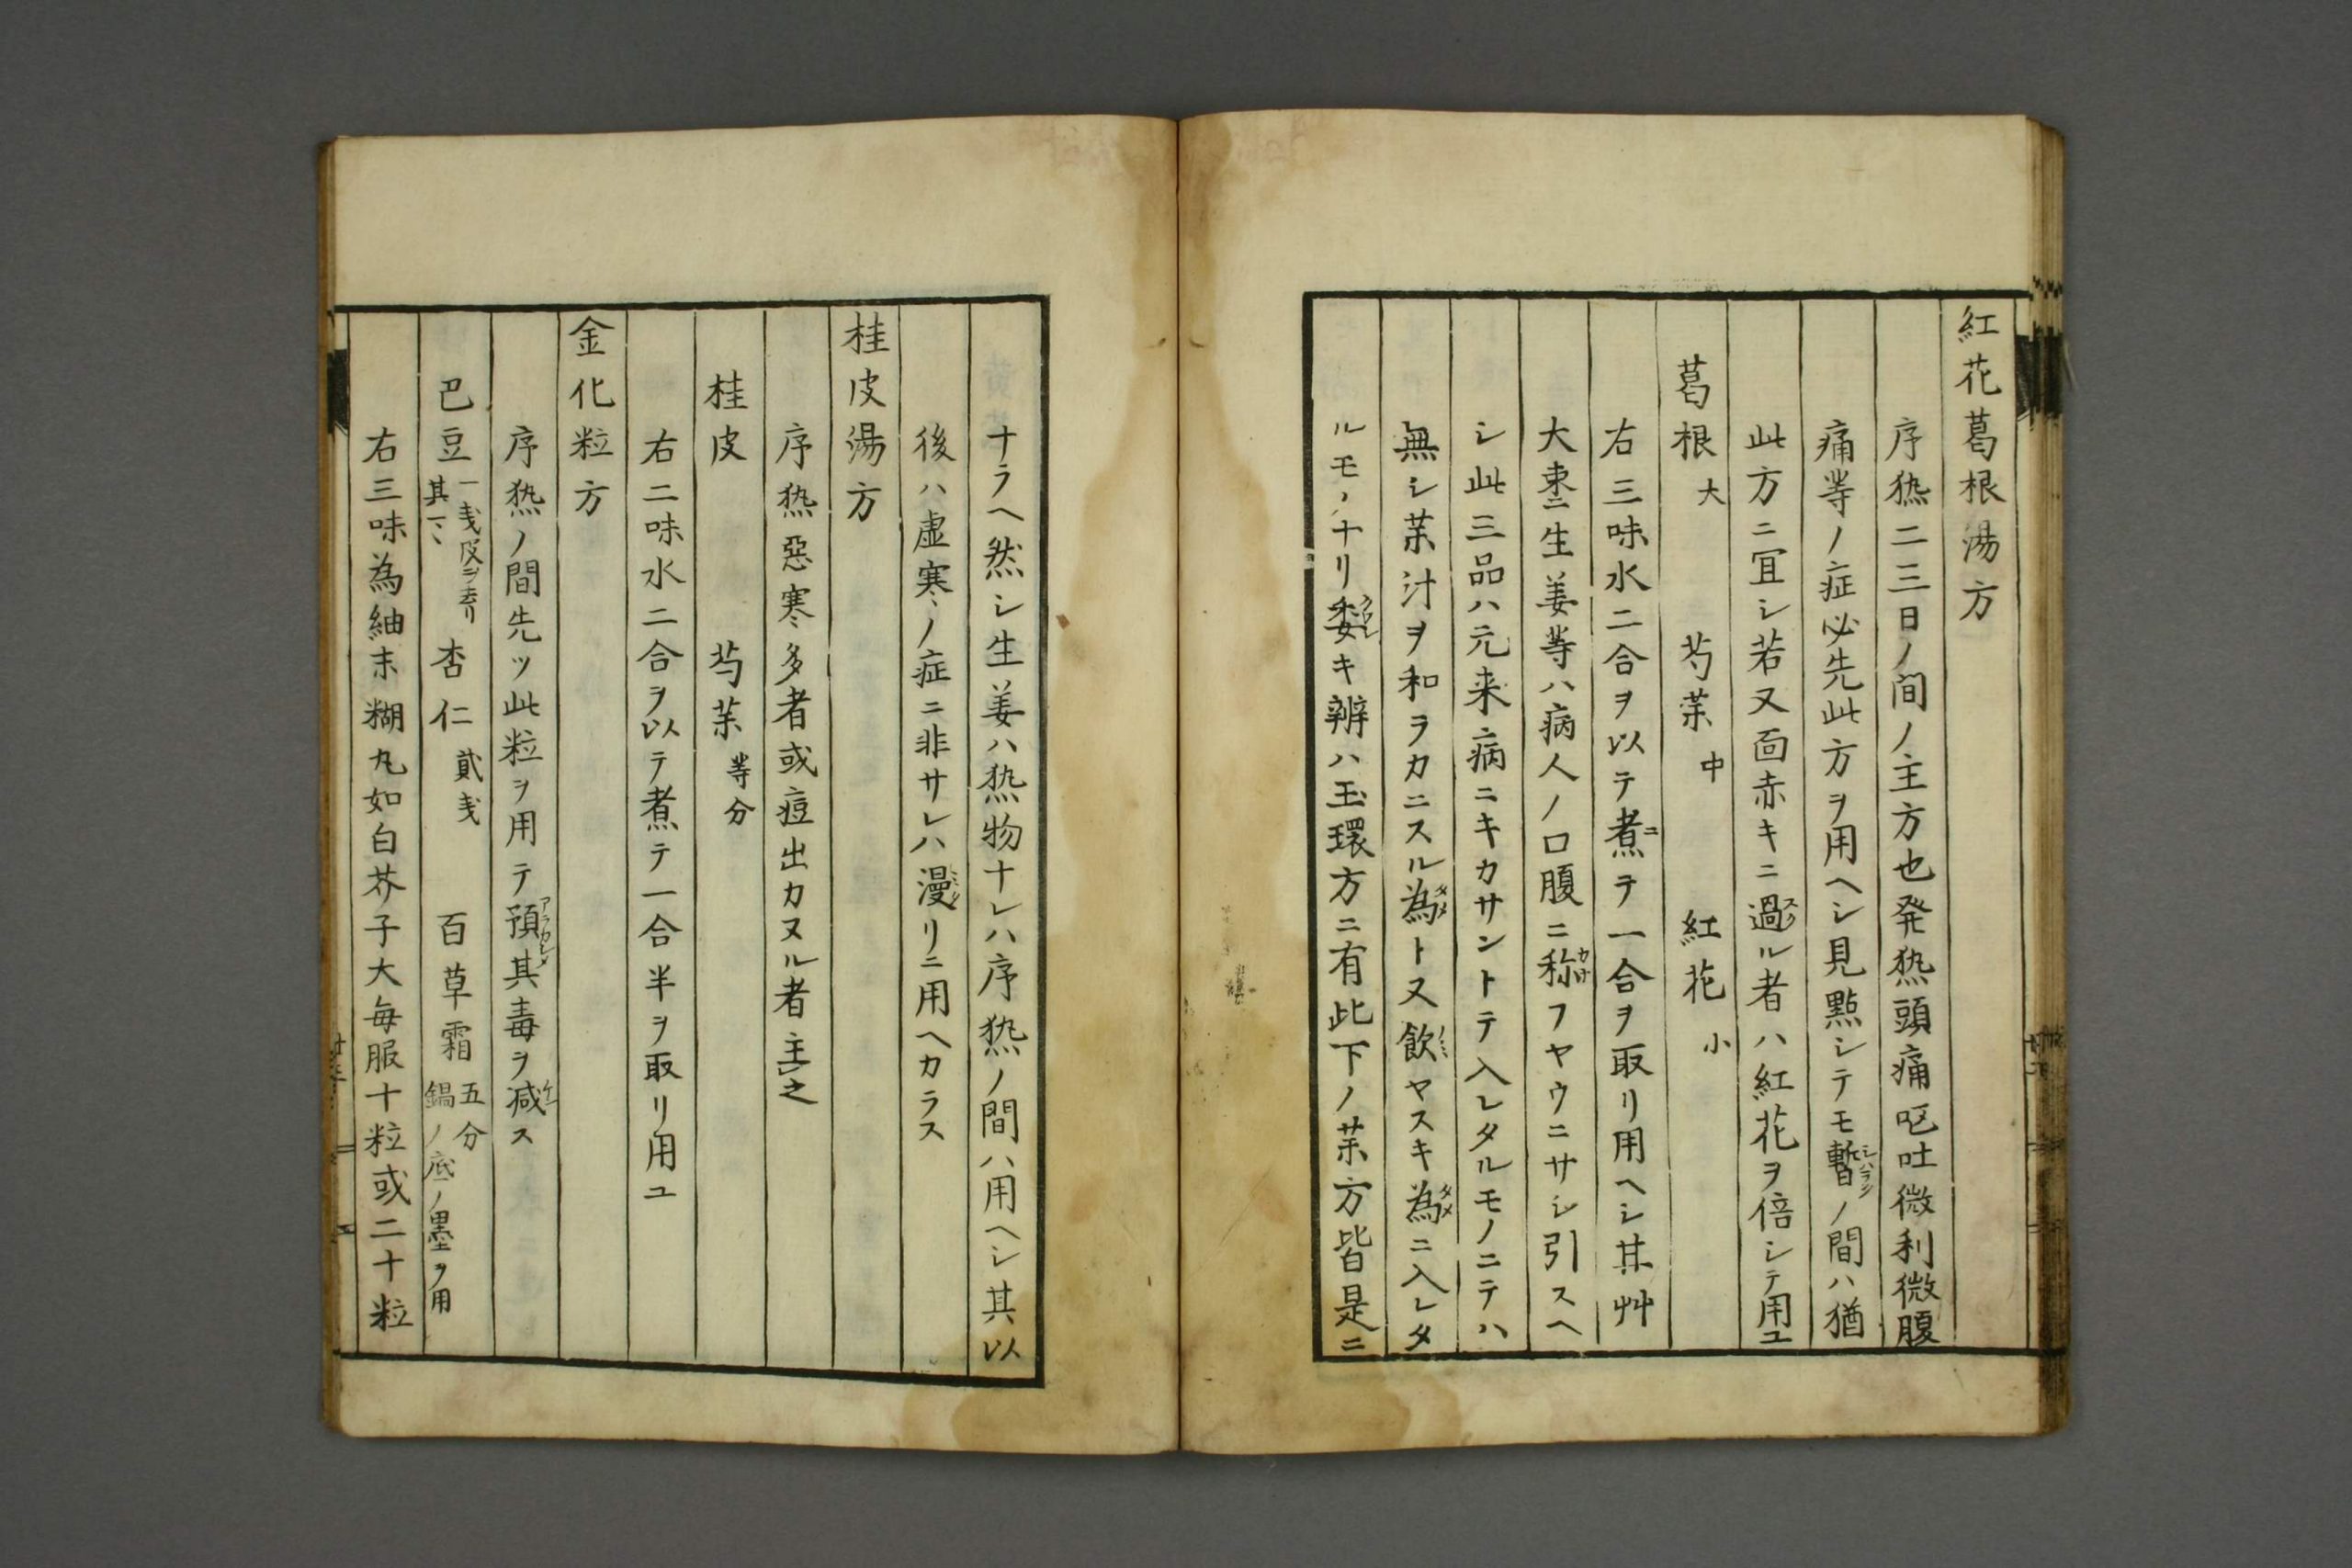 紅花葛根湯方
序熱二三日ノ间ノ主方也発熱頭痛呕吐微利微腹
痛等ノ症必先此方ヲ用ヘシ見點シテモ暫シハラクノ間ハ猶
此方ニ宜シ若又面赤キニ過スクル者ハ紅花ヲ倍シテ用ユ
葛根 大 芍薬 中 紅花 小
右三味水二合ヲ以テ煮ニテ一合ヲ取リ用ヘシ甘艸
大棗生姜等ハ病人ノ口腹ニ称カナフヤウニサシ引スヘ
シ此三品ハ元来病ニキカサントテ入レタルモノニテハ
無シ薬汁ヲ和ラカニスル為タメトヌ飲ノミヤスキ為タメニ入レタ
ルモノナリ委クワシキ辨ハ玉環方ニ有此下ノ薬方皆是ニ
ナラヘ然シ生姜ハ熱物ナレハ序熱ノ間ハ用ヘシ其以
後ハ虚寒ノ症ニ非サレハ漫ミタリニ用ヘカラス
桂皮湯方
序熱惡寒多者或痘出カヌル者主之
桂皮 芍薬 等分
右二味水二合ヲ以テ煮テ一合半ヲ取リ用ユ
金化粒方
序熱ノ間先ツ此粒ヲ用テ預アラカシメ其毒ヲ減ケンス
巴豆 一戔皮ヲ去リ 其 杏仁 貮戔 百草霜 五分 鍋ノ底ノ墨ヲ用
右三味為細末糊丸如白芥子大毎服十粒或二十粒